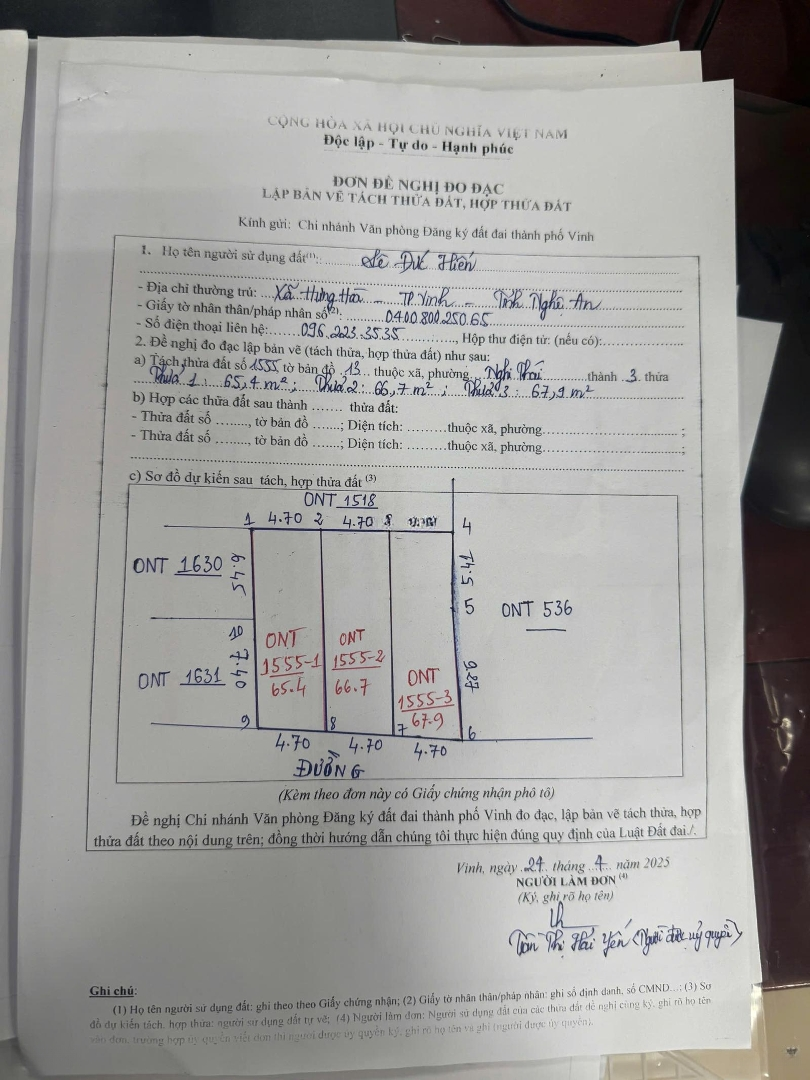 CỘNG HÒA XÃ HỘI CHỦ NGHĨA VIỆT NAM
Độc lập - Tự do - Hạnh phúc
ĐƠN ĐỀ NGHỊ ĐO ĐẠC
LẬP BẢN VẼ TÁCH THỬA ĐẤT, HỢP THỬA ĐẤT
Kính gửi: Chi nhánh Văn phòng Đăng ký đất đai thành phố Vinh
1. Họ tên người sử dụng đất(1): Lê Đức Hiến
- Địa chỉ thường trú: Xã Hưng Hòa - TP Vinh - Tỉnh Nghệ An
- Giấy tờ nhân thân/pháp nhân số(2): 0400.800.250.65
- Số điện thoại liên hệ: 096.2223.3535, Hộp thư điện tử: (nếu có):
2. Đề nghị đo đạc lập bản vẽ (tách thửa, hợp thửa đất) như sau:
a) Tách thửa đất số 1555 tờ bản đồ 13 thuộc xã, phường Nghi Thái thành 3 thửa
Thửa 1: 65,4 m²; Thửa 2: 66,7 m²; Thửa 3: 67,9 m²
b) Hợp các thửa đất sau thành ....... thửa đất:
- Thửa đất số ........, tờ bản đồ .......; Diện tích: .........thuộc xã, phường ;
- Thửa đất số ........, tờ bản đồ .......; Diện tích: .........thuộc xã, phường ;
c) Sơ đồ dự kiến sau tách, hợp thửa đất (3)
ONT 1518
1 4.70 2 4.70 3 4
ONT 1630
6.45
5.41
5
ONT 536
10
ONT 1631
7.40
ONT
1555-1
65.4
ONT
1555-2
66.7
ONT
1555-3
67.9
9.27
9 8 7 6
4.70 4.70 4.70
ĐƯỜNG
(Kèm theo đơn này có Giấy chứng nhận phô tô)
Đề nghị Chi nhánh Văn phòng Đăng ký đất đai thành phố Vinh đo đạc, lập bản vẽ tách thửa, hợp
thửa đất theo nội dung trên; đồng thời hướng dẫn chúng tôi thực hiện đúng quy định của Luật Đất đai./.
Vinh, ngày 24 tháng 4 năm 2025
NGƯỜI LÀM ĐƠN (4)
(Ký, ghi rõ họ tên)
Trần Thị Hải Yến (Người được uỷ quyền)
Ghi chú:
(1) Họ tên người sử dụng đất: ghi theo theo Giấy chứng nhận; (2) Giấy tờ nhân thân/pháp nhân: ghi số định danh, số CMND...; (3) Sơ
đồ dự kiến tách, hợp thửa: người sử dụng đất tự vẽ; (4) Người làm đơn: Người sử dụng đất của các thửa đất đề nghị cùng ký, ghi rõ họ tên
vào đơn, trường hợp ủy quyền viết đơn thì người được ủy quyền ký, ghi rõ họ tên và ghi (người được ủy quyền).